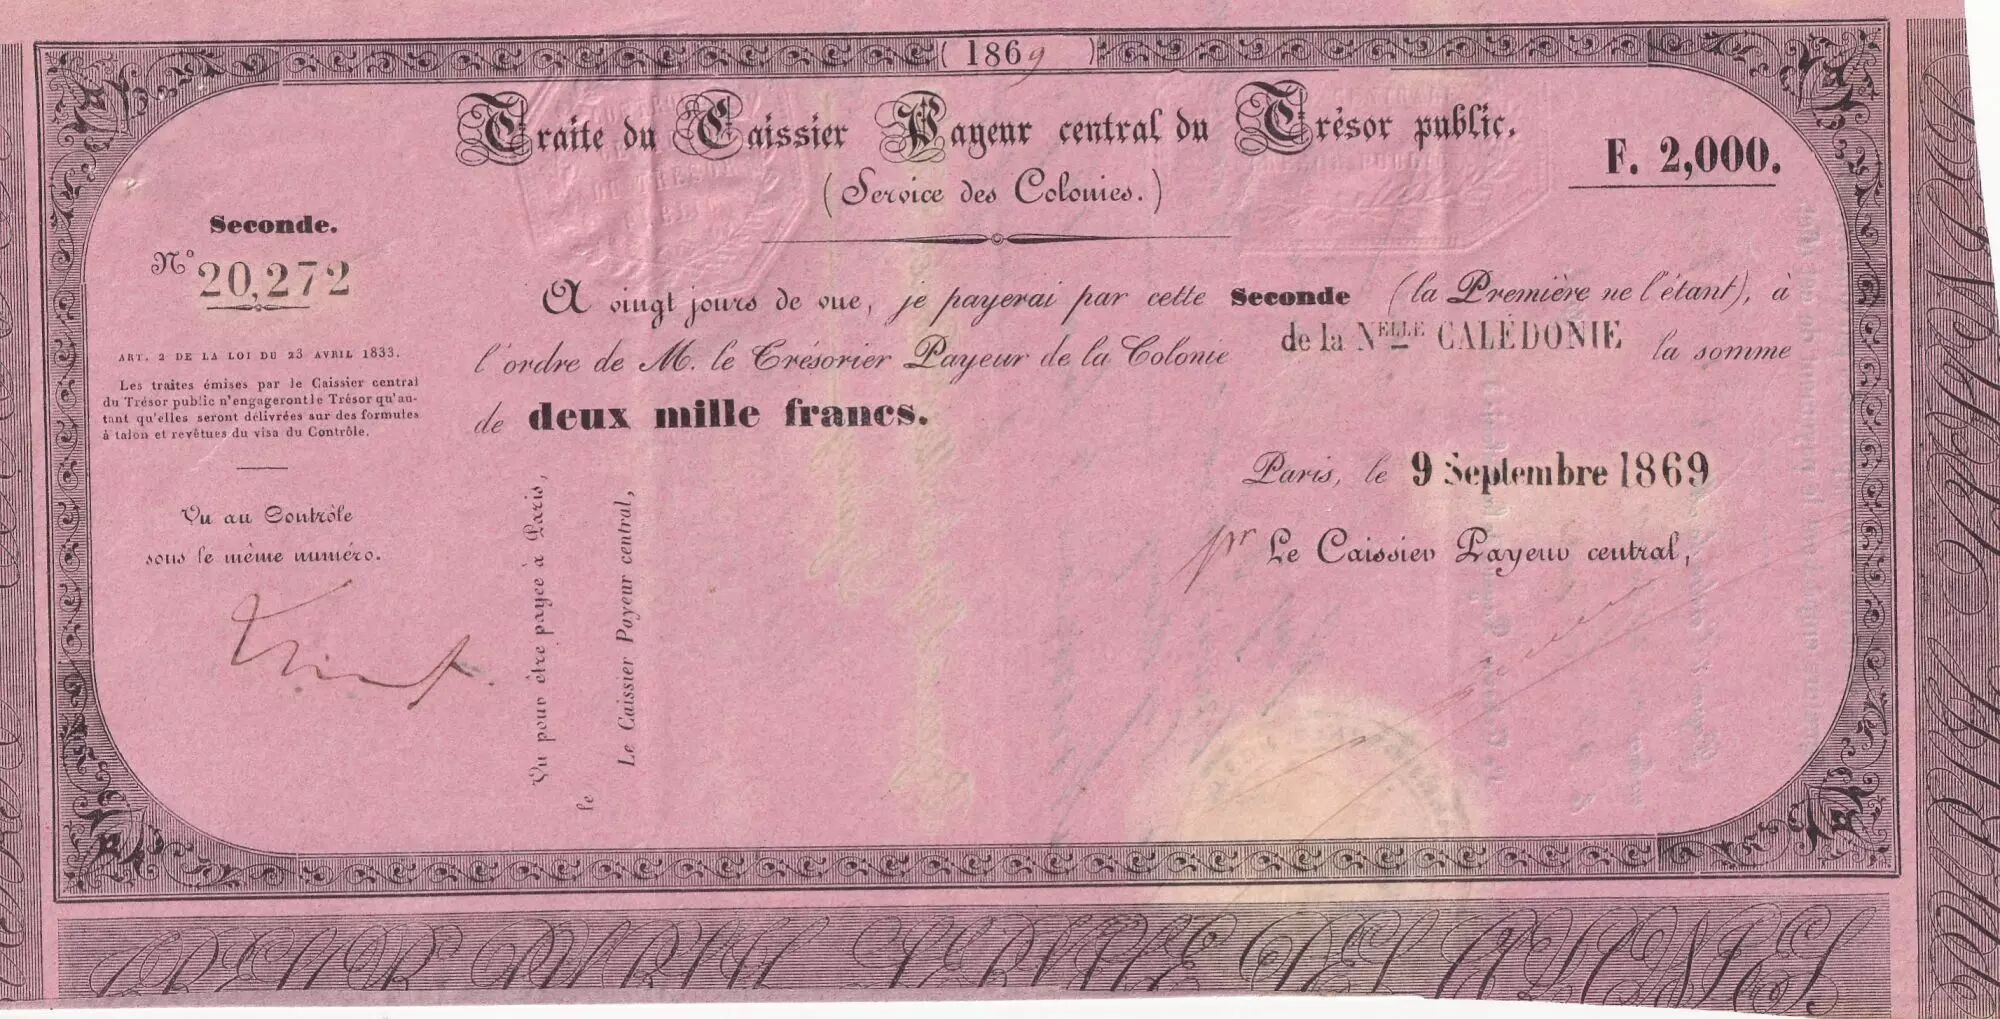 ( 1869 )
Traite du Caissier Payeur central du Trésor public.
(Service des Colonies.)
F. 2,000.
Seconde.
N° 20,272
ART. 2 DE LA LOI DU 23 AVRIL 1833.
Les traites émises par le Caissier central
du Trésor public n'engageront le Trésor qu'au-
tant qu'elles seront délivrées sur des formules
à talon et revêtues du visa du Contrôle.
Vu au Contrôle
sous le même numéro.
A vingt jours de vue, je payerai par cette Seconde (la Première ne l'étant), à
l'ordre de M. le Trésorier Payeur de la Colonie de la NELLE CALÉDONIE la somme
de deux mille francs.
Paris, le 9 Septembre 1869
pr Le Caissier Payeur central,
Vu pour être payée à Paris,
le
Le Caissier Payeur central,
TRÉSOR PUBLIC SERVICE DES COLONIES